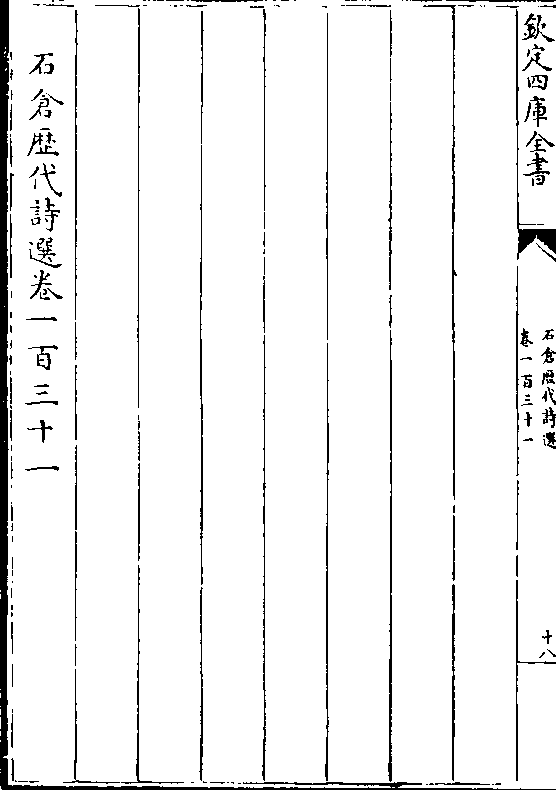 欽定四庫全書
石倉歷代詩選
卷一百三十一
十八
石倉歷代詩選卷一百三十一